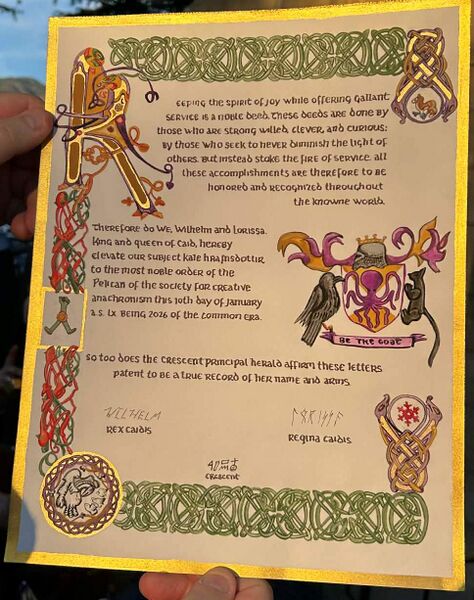 Keeping the spirit of joy while offering gallant
service is a noble deed. These deeds are done by
those who are strong willed, clever, and curious;
by those who seek to never diminish the light of
others. But instead stoke the fire of service. All
these accomplishments are therefore to be
honored and recognized throughout
the knowne world.
Therefore do We, Wilhelm and Lorissa,
King and Queen of Caid, hereby
elevate our subject Kate Hrafnsdottir
to the most noble order of the
Pelican of the Society for Creative
Anachronism this 10th day of January
A.S. LX being 2026 of the common era.
BE THE GOAT
So too does the Crescent Principal Herald affirm these letters
patent to be a true record of her name and arms.
WILHELM
Rex Caidis
ᛚᛟᚱᛁᛊᛊᚨ
Regina Caidis
Crescent